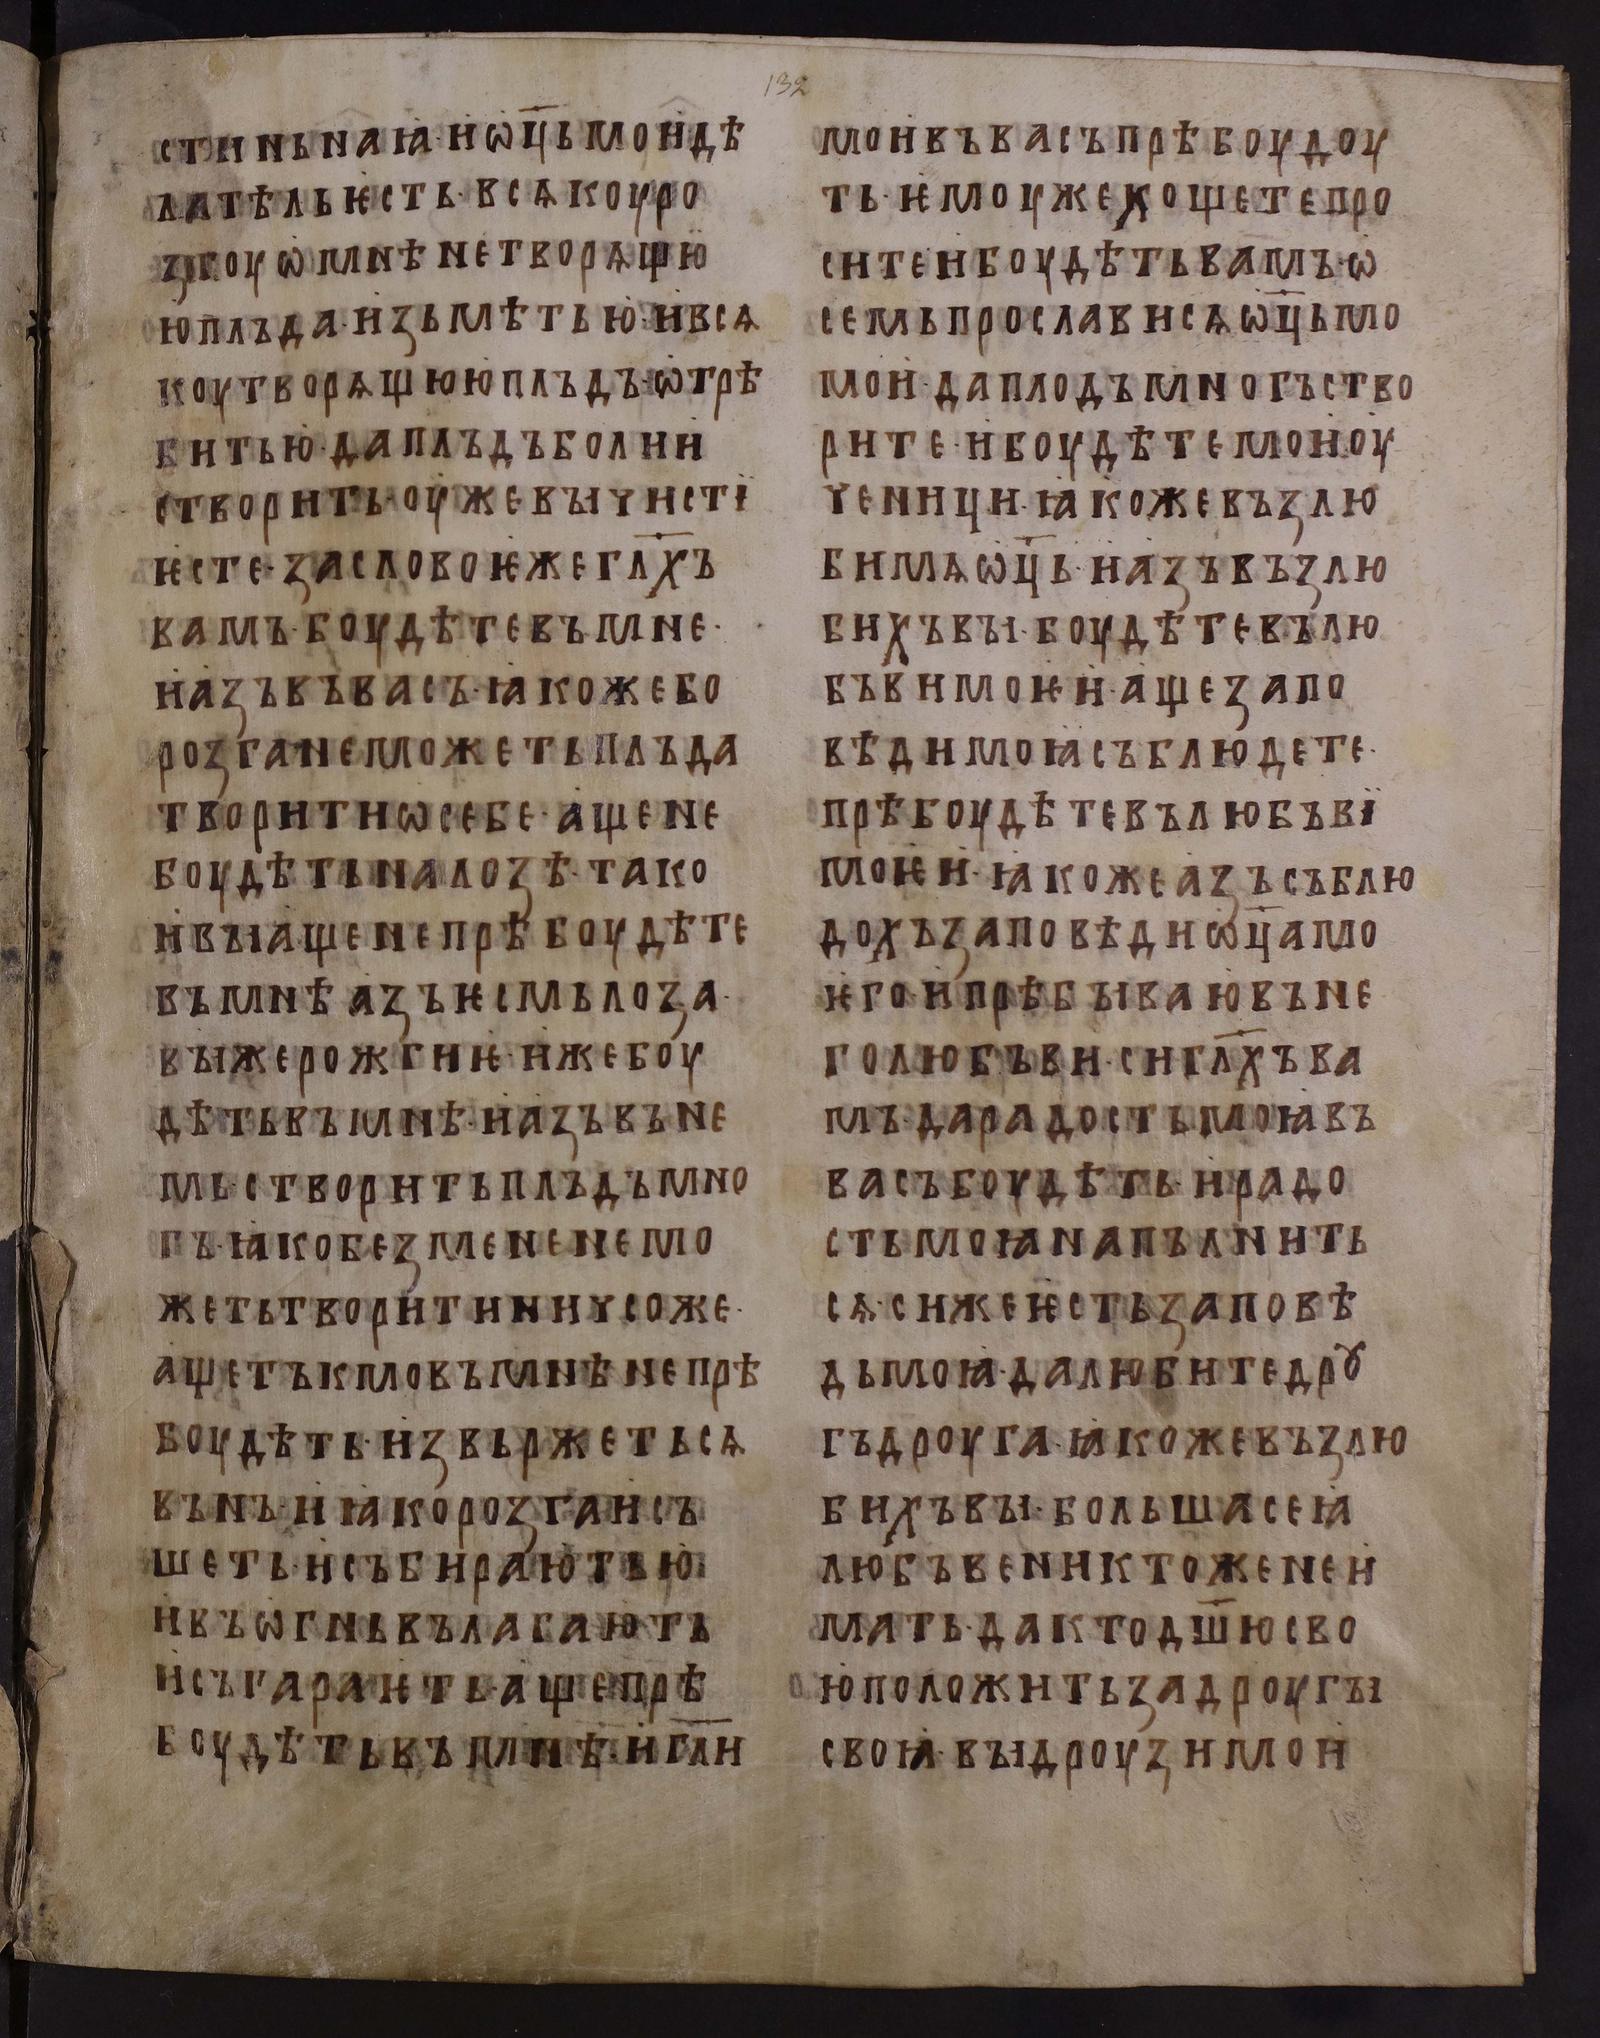 132
стиньнаꙗ·и҆ѡц҃ьмои҆дѣ
лательѥсть·всѧкоуро
ꙁгоуѡмнѣнетворѧщю
юплъда·иꙁьмѣтью·и҆всѧ
коутворѧщююплъдъ·ѡтрѣ
битью·даплъдъболии
створить·оужевꙑчисті
ѥсте·ꙁасловоѥжегл҃хъ
вамъ·боудѣтевъмне·
и҆аꙁъвъвасъ·ꙗкожебо
роꙁганеможетьплъда
творитиѡсебе·ащене
боудѣтьналоꙁѣ·тако
и҆вꙑащенепрѣбоудѣте
въмнѣаꙁъѥсмьлоꙁа·
вꙑжерожгиѥ·и҆жебоу
дѣтьвъмнѣ·и҆аꙁъвъне
мь·створитьплъдъмно
гъ·ꙗкобеꙁмененемо
жетьтворитиничсоже·
ащетъкмовъмнѣнепрѣ
боудѣть·иꙁвьржетьсѧ
вънъ·и҆ꙗкороꙁгаи҆съ
шеть·и҆събираютью·
и҆въѡгньвълагають
и҆съгараѥть·ащепрѣ
боудѣтьвъмнѣ·и҆гл҃и
мои҆въвасъпрѣбоудоу
ть·ѥмоужехощетепро
ситеи҆боудѣтьвамъ·ѡ
семьпрослависѧѡц҃ьмо
мои҆·даплодъмногъство
рите·и҆боудѣтемои҆оу
ченици·ꙗкожевъꙁлю
бимѧѡц҃ь·и҆аꙁъвъꙁлю
бихъвꙑ·боудѣтевълю
бъвимоѥи҆·ащеꙁапо
вѣдимоꙗсъблюдете·
прѣбоудѣтевълюбъвї
моѥи҆·ꙗкожеаꙁъсъблю
дохъꙁаповѣдиѡц҃амо
ѥгои҆прѣбꙑваювъне
голюбъви·сигл҃хъва
мъ·дарадостьмоꙗвъ
васъбоудѣть·и҆радо
стьмоꙗнапълнить
сѧ·сижеѥстьꙁаповѣ
дьмоꙗ·далюбитедрꙋ
гъдроуга·ꙗкожевъꙁлю
бихъвꙑ·большасеꙗ
любъвениктоженеи҆
мать·дактодш҃юсво
юположитьꙁадроугꙑ
своꙗ·вꙑдроуꙁимои҆